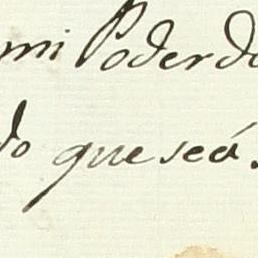 mi Poder do
do que seá.